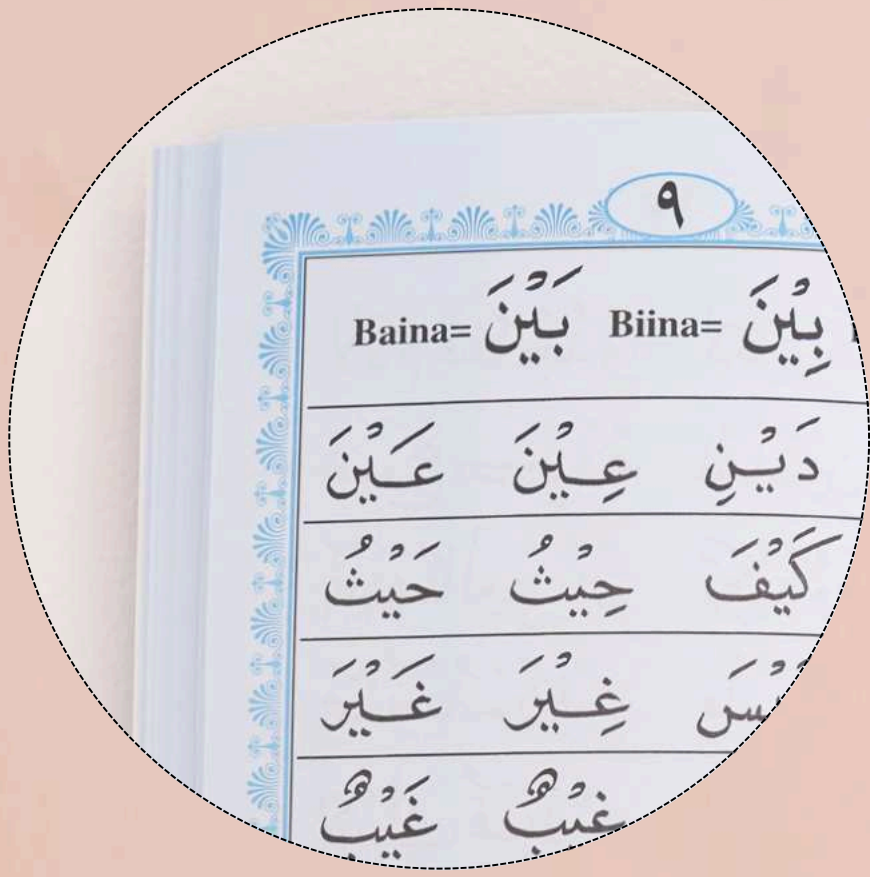 ٩
بِيْنَ =Biina بَيْنَ =Baina
دَيْنِ عِيْنَ عَيْنَ
كَيْفَ حِيْثُ حَيْثُ
غِيْرَ غَيْرَ
غِيْبٌ غَيْبٌ